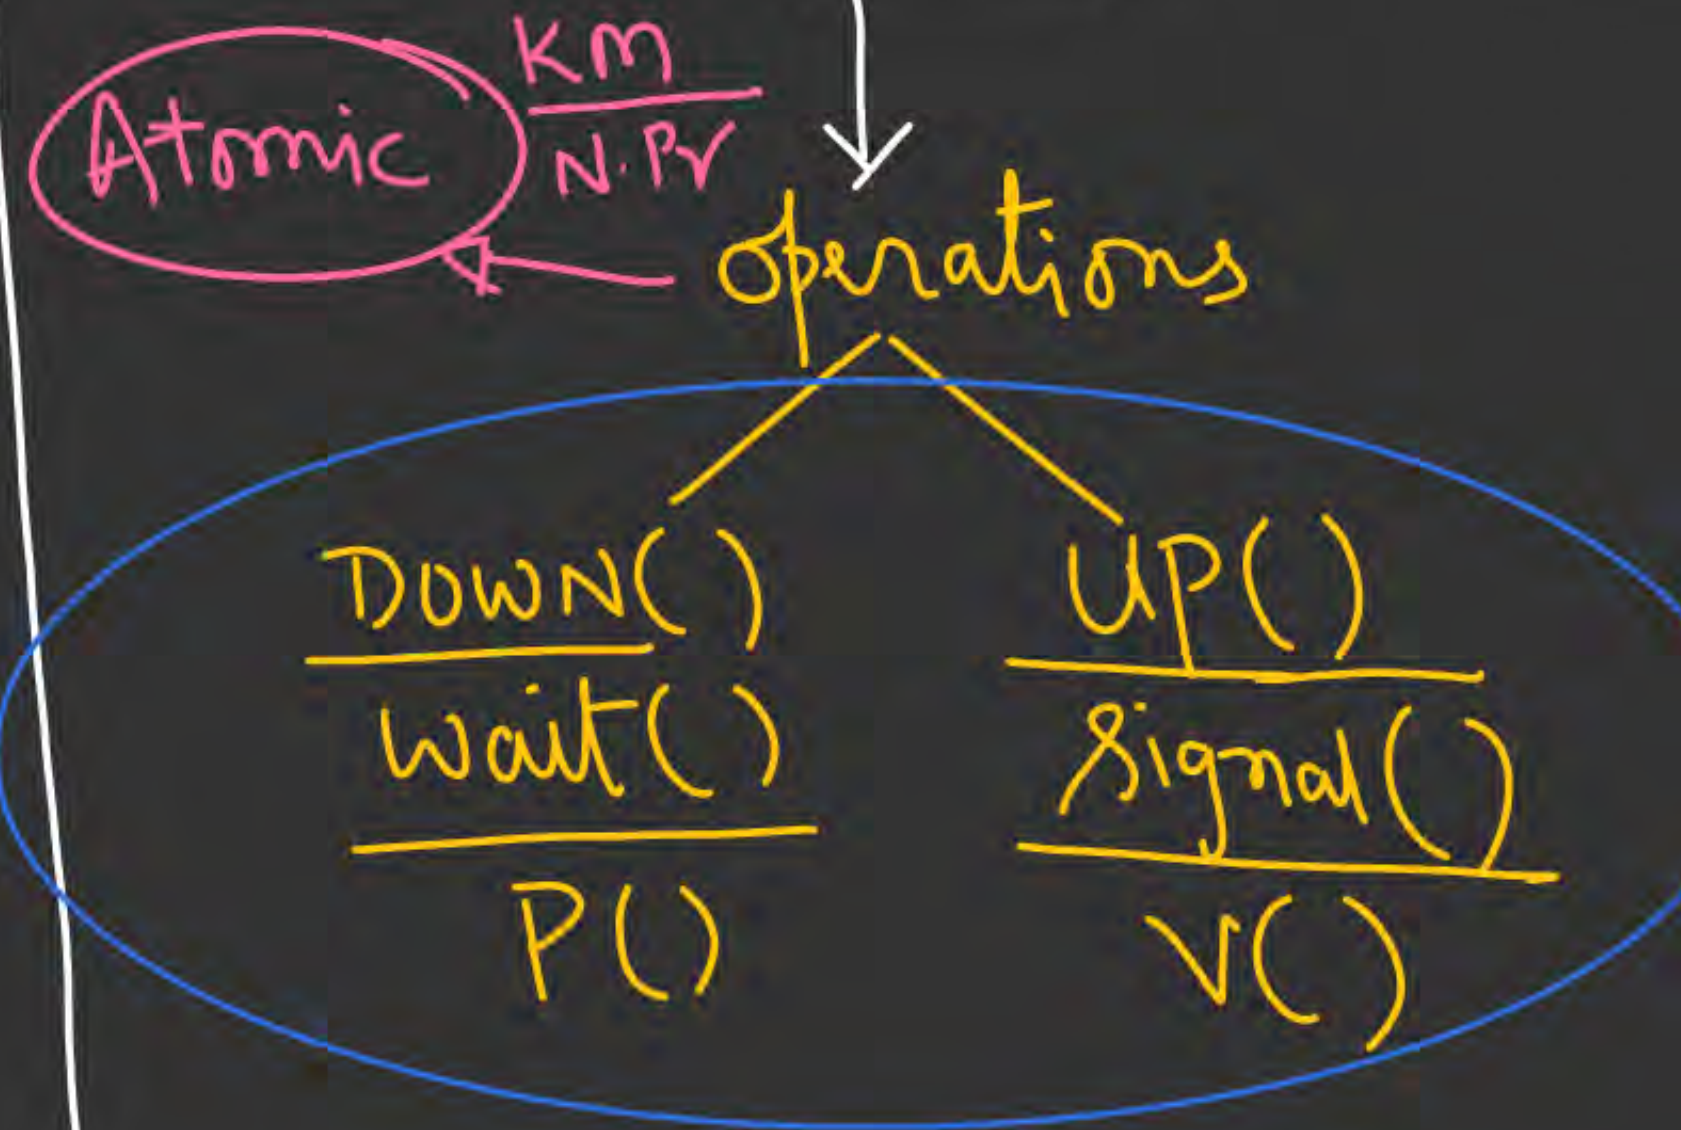 Atomic
KM
N.Pr
operations
DOWN( )
UP( )
Wait( )
Signal( )
P( )
V( )